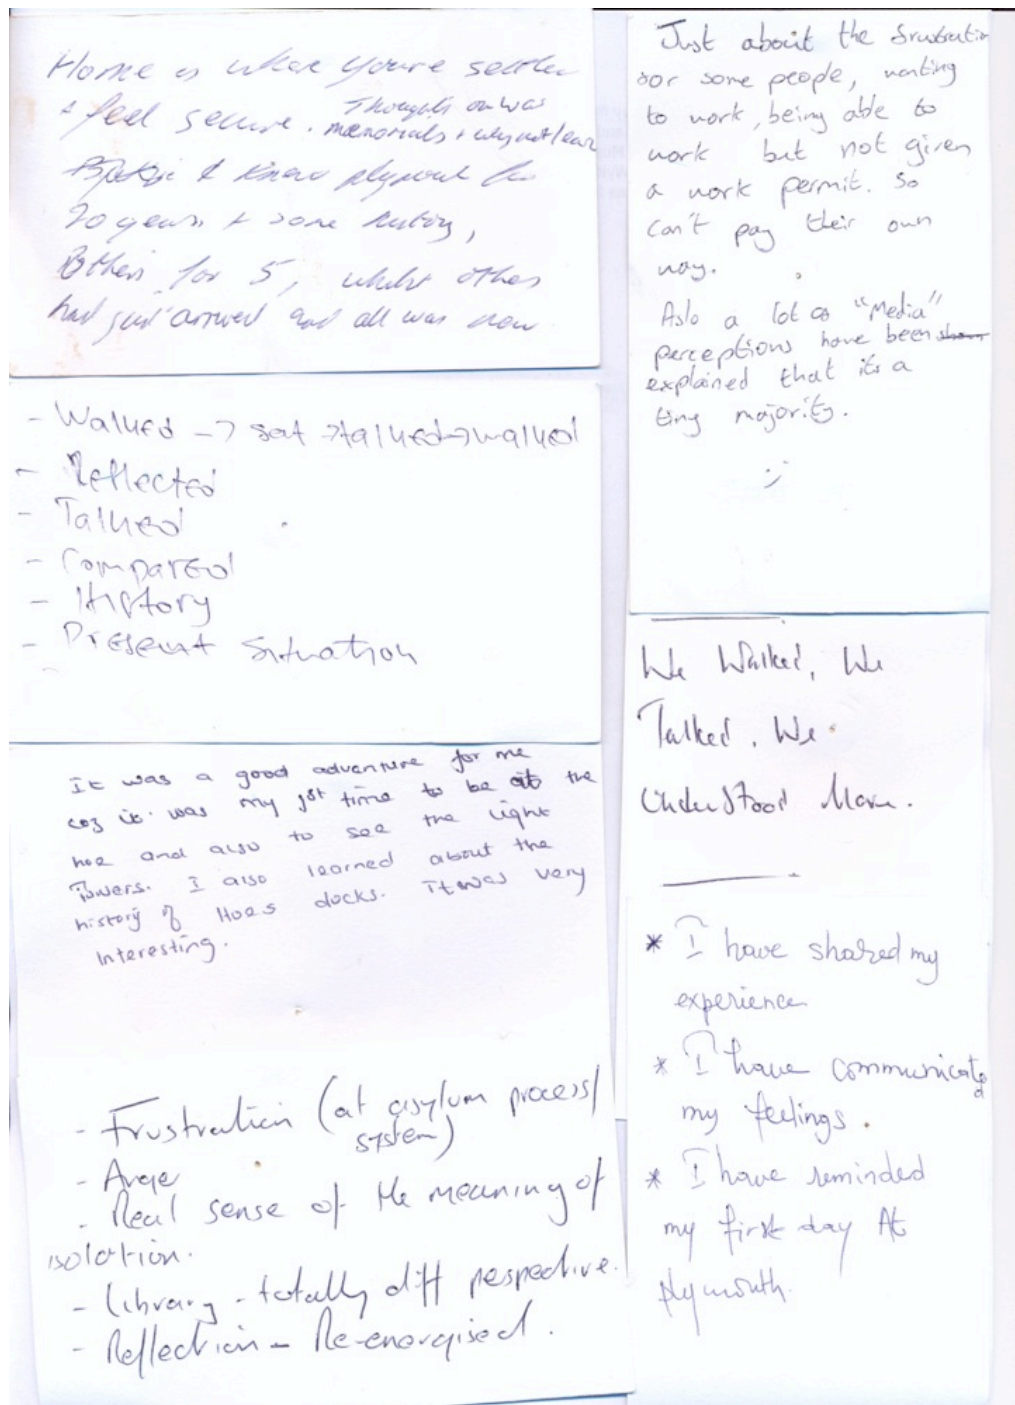 Home is where you're settled
+ feel secure. Thoughts on war
memorials + why not learn
I knew plymouth for
20 years + some history,
Others for 5, whilst others
had just arrived and all was new
- Walked -> sat ->talked->walked
- Reflected
- Talked
- Compared
- History
- Present Situation
It was a good adventure for me
coz it was my 1st time to be at the
hoe and also to see the light
Towers. I also learned about the
history of Hoes docks. It was very
Interesting.
- Frustration (at asylum process/
system)
- Anger
- Real sense of the meaning of
isolation.
- Library - totally diff pespective.
- Reflection - Re-energised.
Just about the frustratin
for some people, wanting
to work, being able to
work but not given
a work permit. So
can't pay their own
way.
Aslo a lot of "Media"
perceptions have been
explained that its a
tiny majority.
:)
We Walked, We
Talked, We
Understood More.
* I have shared my
experience
* I have communicated
my feelings.
* I have reminded
my first day At
plymouth.